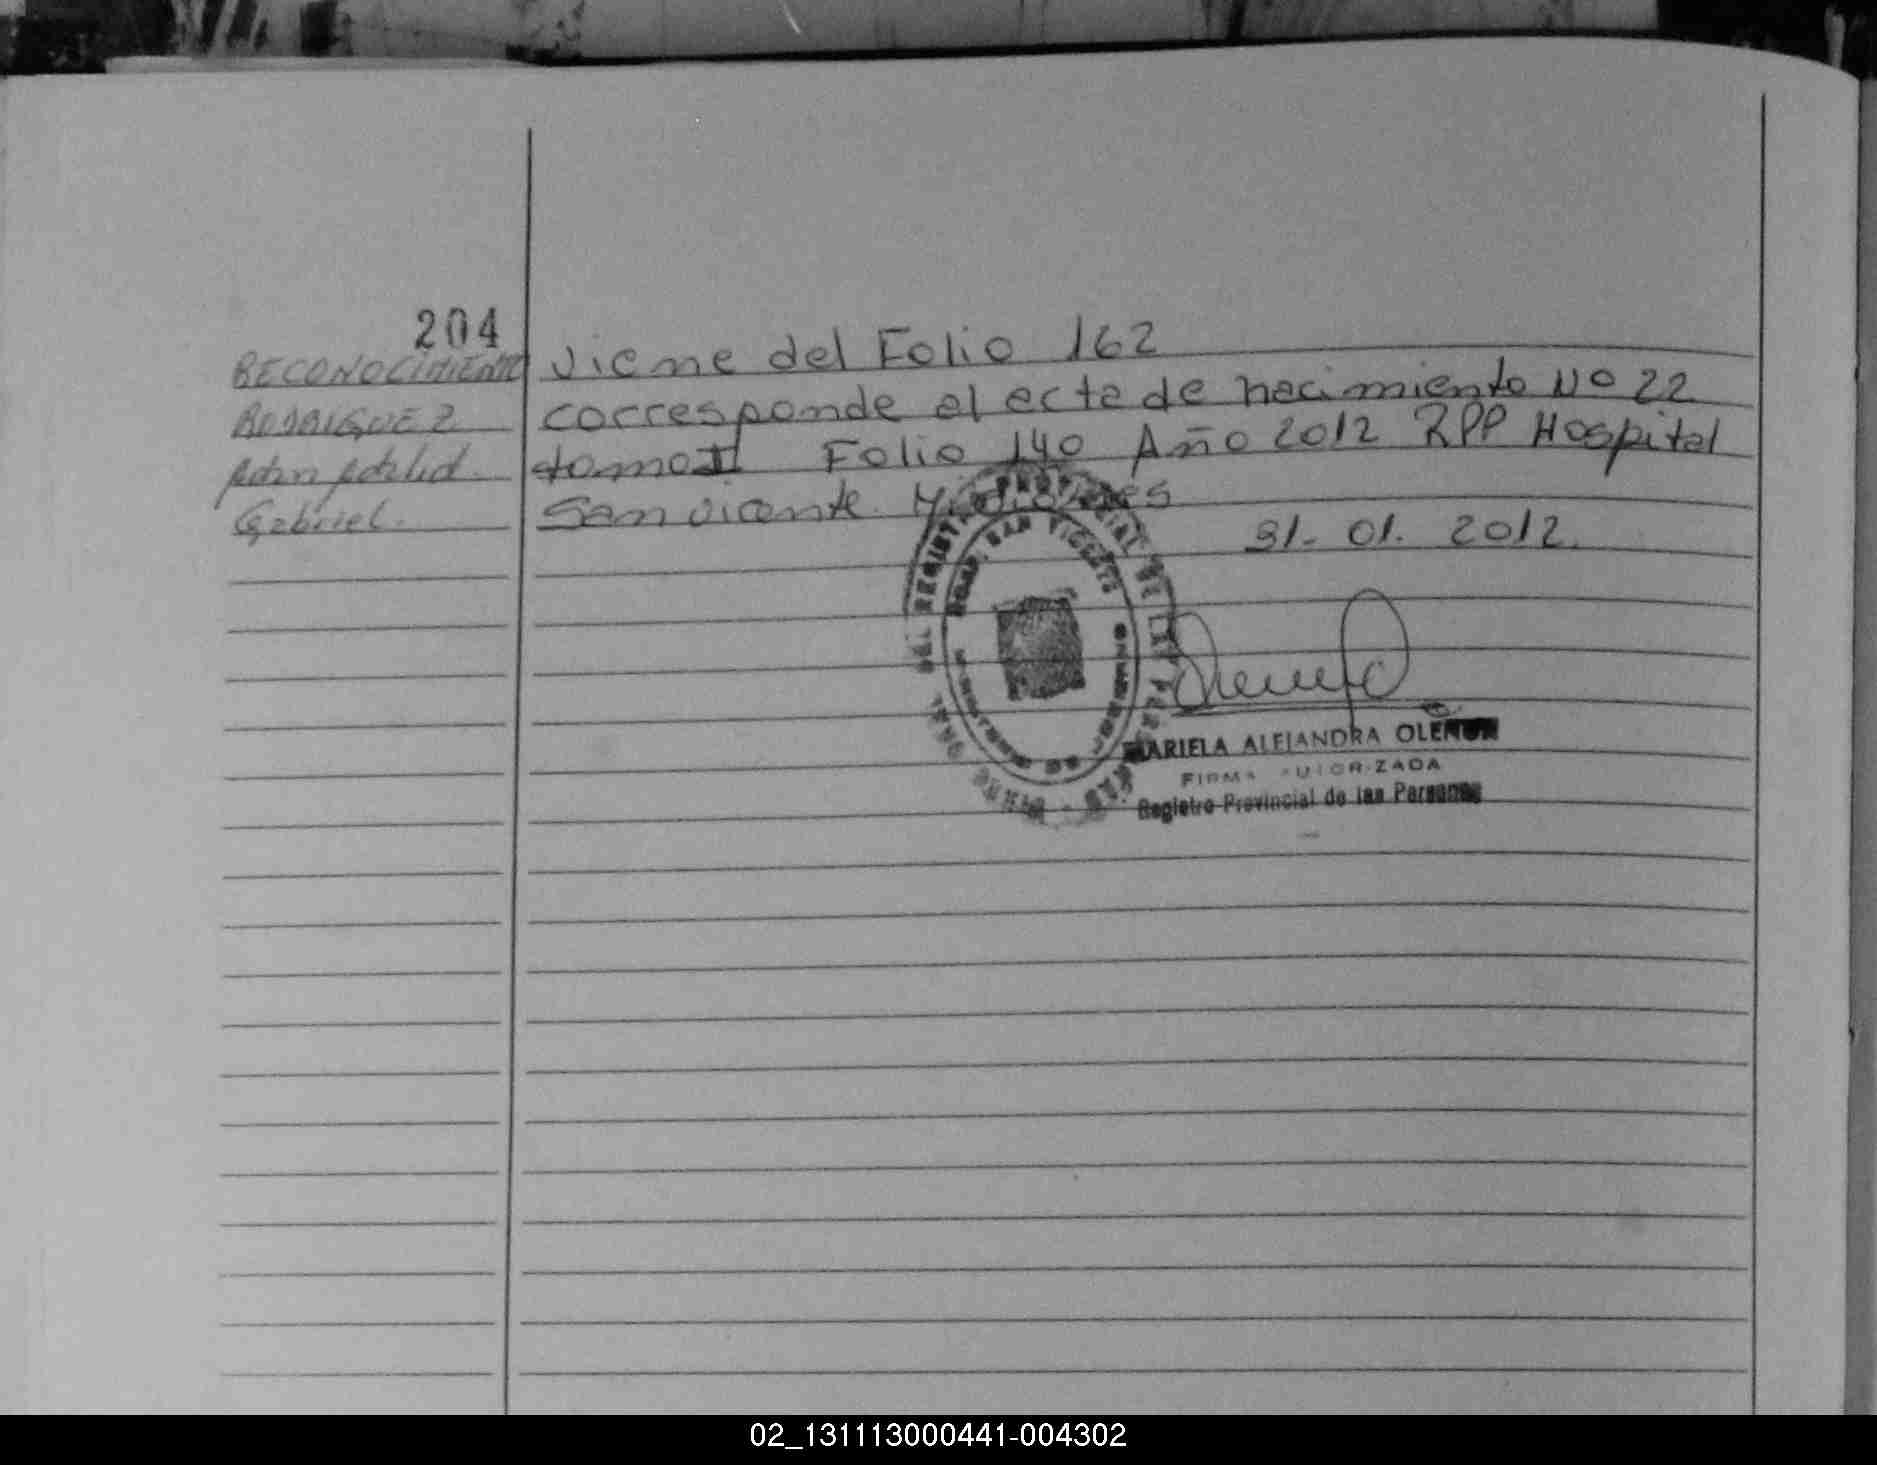 204
RECONOCIMIENTO
RODRIGUEZ
Gabriel.
Viene del Folio 162
corresponde al acta de nacimiento Nº 22
tomo I Folio 140 Año 2012 RPP Hospital
San Vicente. Misiones
31-01.2012.
SAN VICENTE
MARIELA ALEJANDRA
FIRMA AUTORIZADA
Registro Provincial de las Personas
02_131113000441-004302